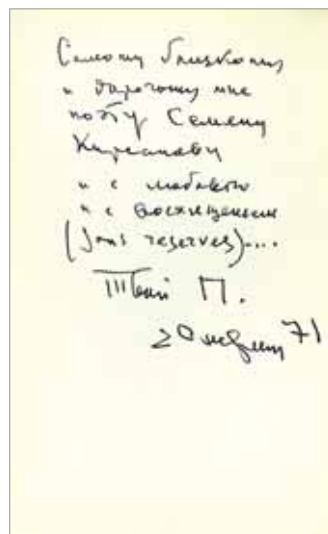 Самому близкому
и дорогому мне
поэту Семену
Кирсанову
и с любовью
и с восхищеньем
(sans reserves)....
Твой П.
20 71